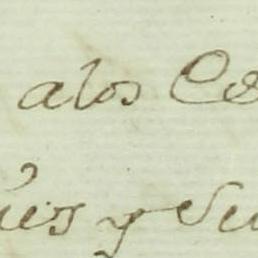 alos Co
es y Su